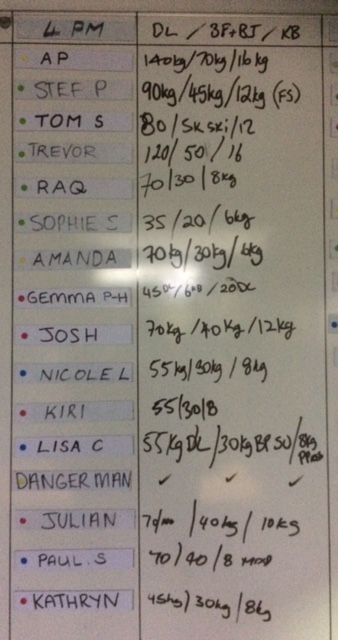 4 PM DL / BF+BJ / KB
AP 140kg/70kg/16kg
STEF P 90kg/45kg/12kg (FS)
TOM S 80 / 5K SKi / 12
TREVOR 120/ 50 / 16
RAQ 70/30/8kg
SOPHIE S 35/20/6kg
AMANDA 70kg/30kg/6kg
GEMMA P-H 45 / 20
JOSH 70kg / 40kg / 12kg
NICOLE L 55kg/30kg / 8kg
KIRI 55/30/8
LISA C 55kg DL /30kg BP SU /8kg
DANGERMAN ✓ ✓ ✓
JULIAN /40kg / 10kg
PAUL.S 70/40/8 MOD
KATHRYN 45kg/30kg/8kg